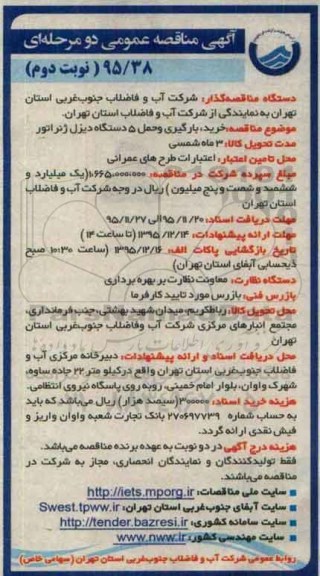 آگهی مناقصه عمومی دو مرحله‌ای
۹۵/۳۸ ( نوبت دوم)
دستگاه مناقصه‌گذار: شرکت آب و فاضلاب جنوب‌غربی استان
تهران به نمایندگی از شرکت آب و فاضلاب استان تهران.
موضوع مناقصه: خرید، بارگیری وحمل ۵ دستگاه دیزل ژنراتور
مدت تحویل کالا: ۳ ماه شمسی
محل تامین اعتبار: اعتبارات طرح های عمرانی
مبلغ سپرده شرکت در مناقصه: ۱،۶۶۵،۰۰۰،۰۰۰(یک میلیارد و
ششصد و شصت و پنج میلیون ) ریال در وجه شرکت آب و فاضلاب
استان تهران
مهلت دریافت اسناد: ۹۵/۱۱/۲۰ الی ۹۵/۱۱/۲۷
مهلت ارائه پیشنهادات: ۱۳۹۵/۱۲/۱۴ (تا ساعت ۱۴ )
تاریخ بازگشایی پاکات الف: ۱۳۹۵/۱۲/۱۶ (ساعت ۱۰:۳۰ صبح
ذیحسابی آبفای استان تهران)
دستگاه نظارت: معاونت نظارت بر بهره برداری
بازرس فنی: بازرس مورد تایید کارفرما
محل تحویل کالا: رباط‌کریم، میدان شهید بهشتی، جنب فرمانداری،
مجتمع انبارهای مرکزی شرکت آب وفاضلاب جنوب‌غربی استان
تهران
محل دریافت اسناد و ارائه پیشنهادات: دبیرخانه مرکزی آب و
فاضلاب جنوب‌غربی استان تهران واقع درکیلو متر ۲۲ جاده ساوه،
شهرک واوان، بلوار امام خمینی، روبه روی پاسگاه نیروی انتظامی.
هزینه خرید اسناد: ۳۰۰۰۰۰(سیصد هزار) ریال می‌باشد که باید
به حساب شماره ۲۷۰۶۹۷۷۳۹ بانک تجارت شعبه واوان واریز و
فیش نقدی ارائه گردد.
هزینه درج آگهی در دو نوبت به عهده برنده مناقصه می‌باشد.
فقط تولیدکنندگان و نمایندگان انحصاری، مجاز به شرکت در
مناقصه می‌باشند.
سایت ملی مناقصات: http://iets.mporg.ir
سایت آبفای جنوب‌غربی استان تهران: Swest.tpww.ir
سایت سامانه کشوری: http://tender.bazresi.ir
سایت مهندسی کشور: www.nww.ir
روابط عمومی شرکت آب و فاضلاب جنوب‌غربی استان تهران (سهامی خاص)